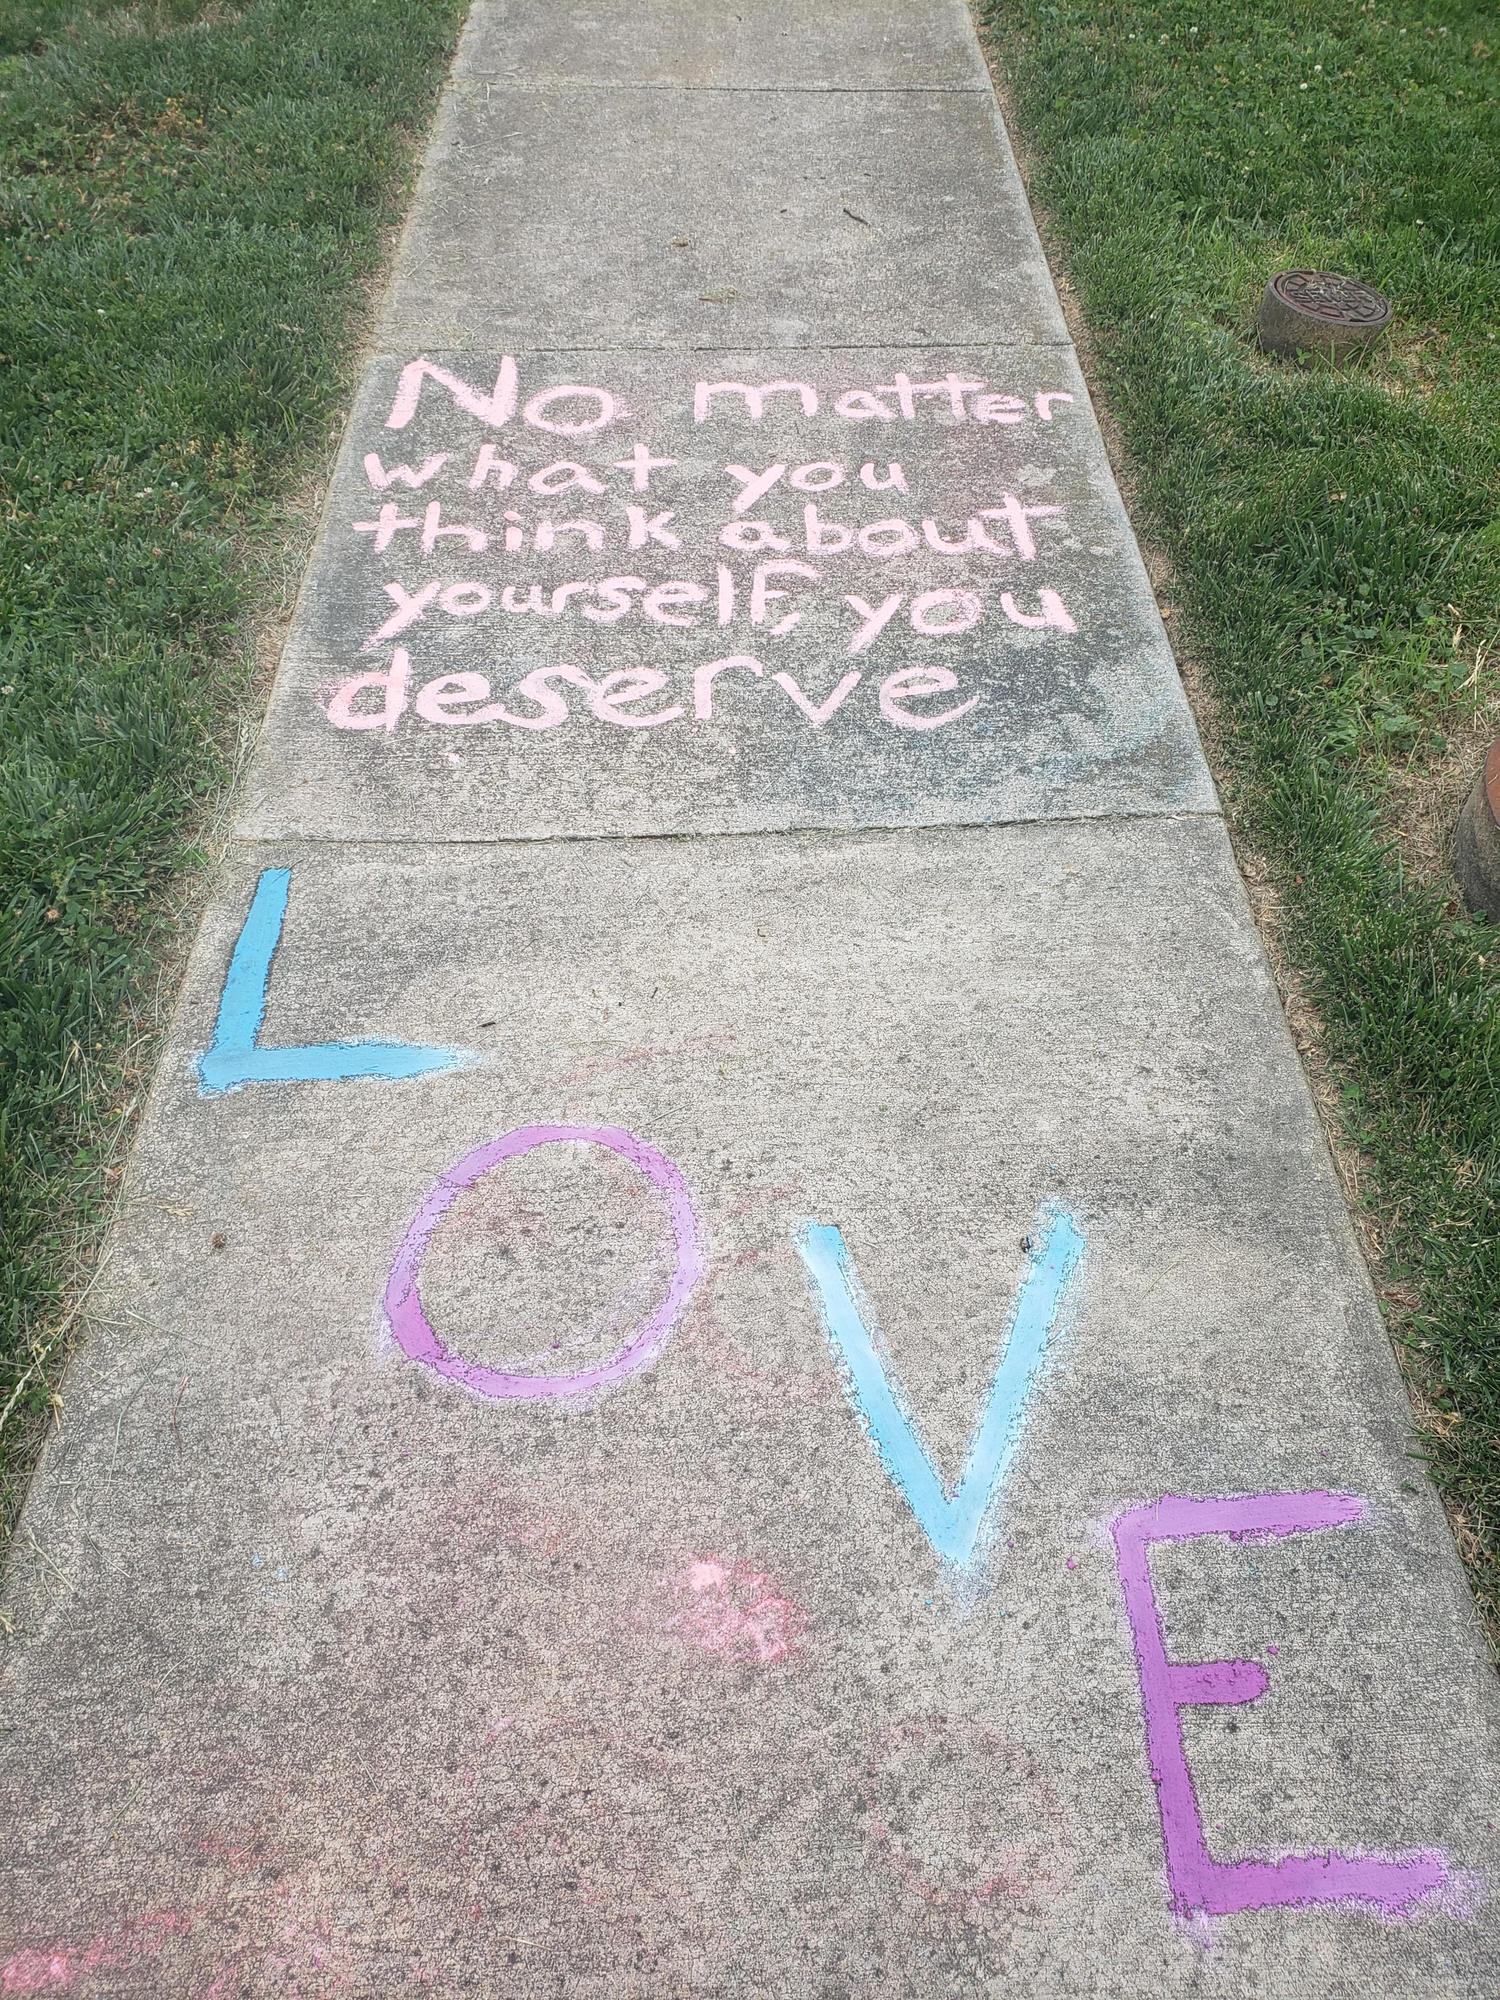 No matter
what you
think about
yourself, you
deserve
LOVE